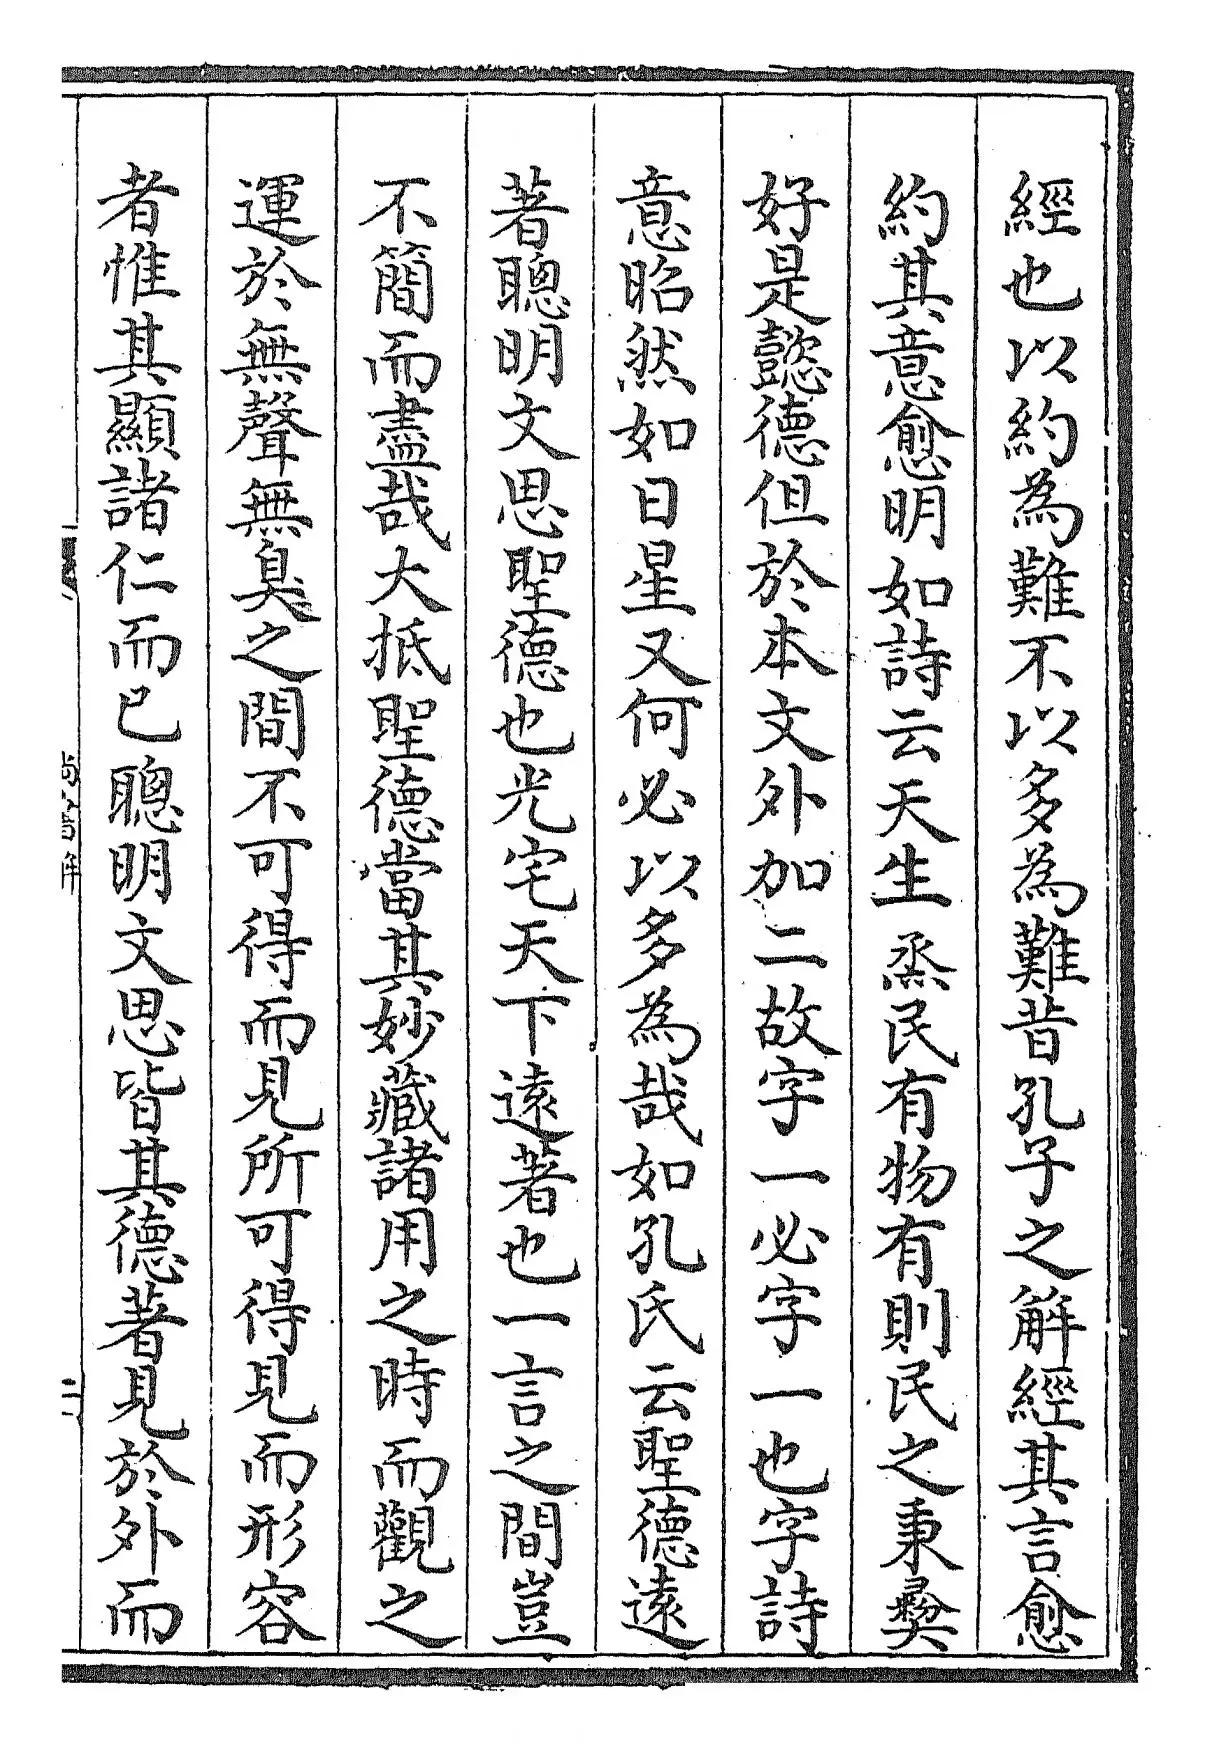 經也以約為難不以多為難昔孔子之解經其言愈
約其意愈明如詩云天生烝民有物有則民之秉彞
好是懿德但於本文外加二故字一必字一也字詩
意昭然如日星又何必以多為哉如孔氏云聖德遠
著聰明文思聖德也光宅天下遠著也一言之間豈
不簡而盡哉大抵聖德當其妙藏諸用之時而觀之
運於無聲無臭之間不可得而見所可得見而形容
者惟其顯諸仁而已聰明文思皆其德著見於外而
尚書解
二